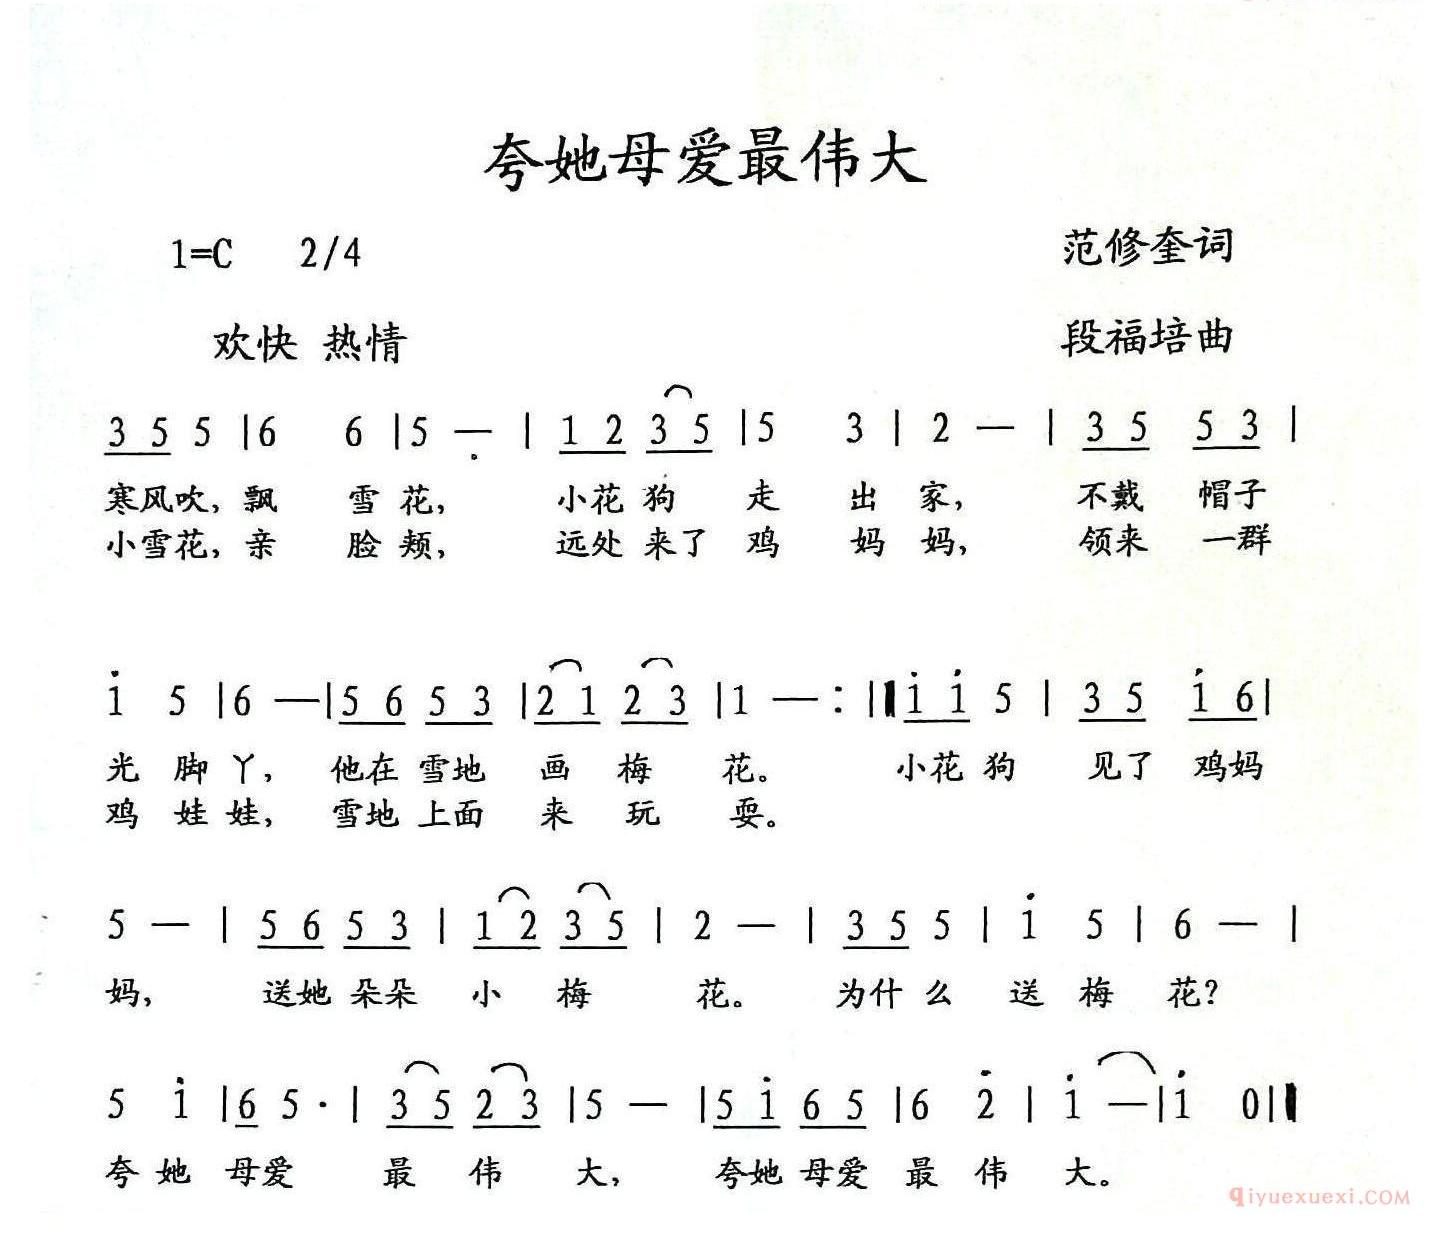 夸她母爱最伟大
1=C 2/4 范修奎词
欢快 热情 段福培曲
3 5 5 | 6 6 | 5 — | 1 2 3 5 | 5 3 | 2 — | 3 5 5 3 |
寒风吹，飘 雪 花， 小花 狗 走 出 家， 不戴 帽子
小雪花，亲 脸 颊， 远处 来了 鸡 妈 妈， 领来 一群
i 5 | 6 — | 5 6 5 3 | 2 1 2 3 | 1 — :‖ i i 5 | 3 5 i 6 |
光 脚 丫， 他在 雪地 画 梅 花。 小花 狗 见了 鸡妈
鸡 娃 娃， 雪地 上面 来 玩 耍。
5 — | 5 6 5 3 | 1 2 3 5 | 2 — | 3 5 5 | i 5 | 6 — |
妈， 送她 朵朵 小 梅 花。 为什 么 送 梅 花？
5 i | 6 5 · | 3 5 2 3 | 5 — | 5 i 6 5 | 6 2̇ | i — | i 0 ‖
夸 她 母爱 最 伟 大， 夸她 母爱 最 伟 大。
qiyuexuexi.COM